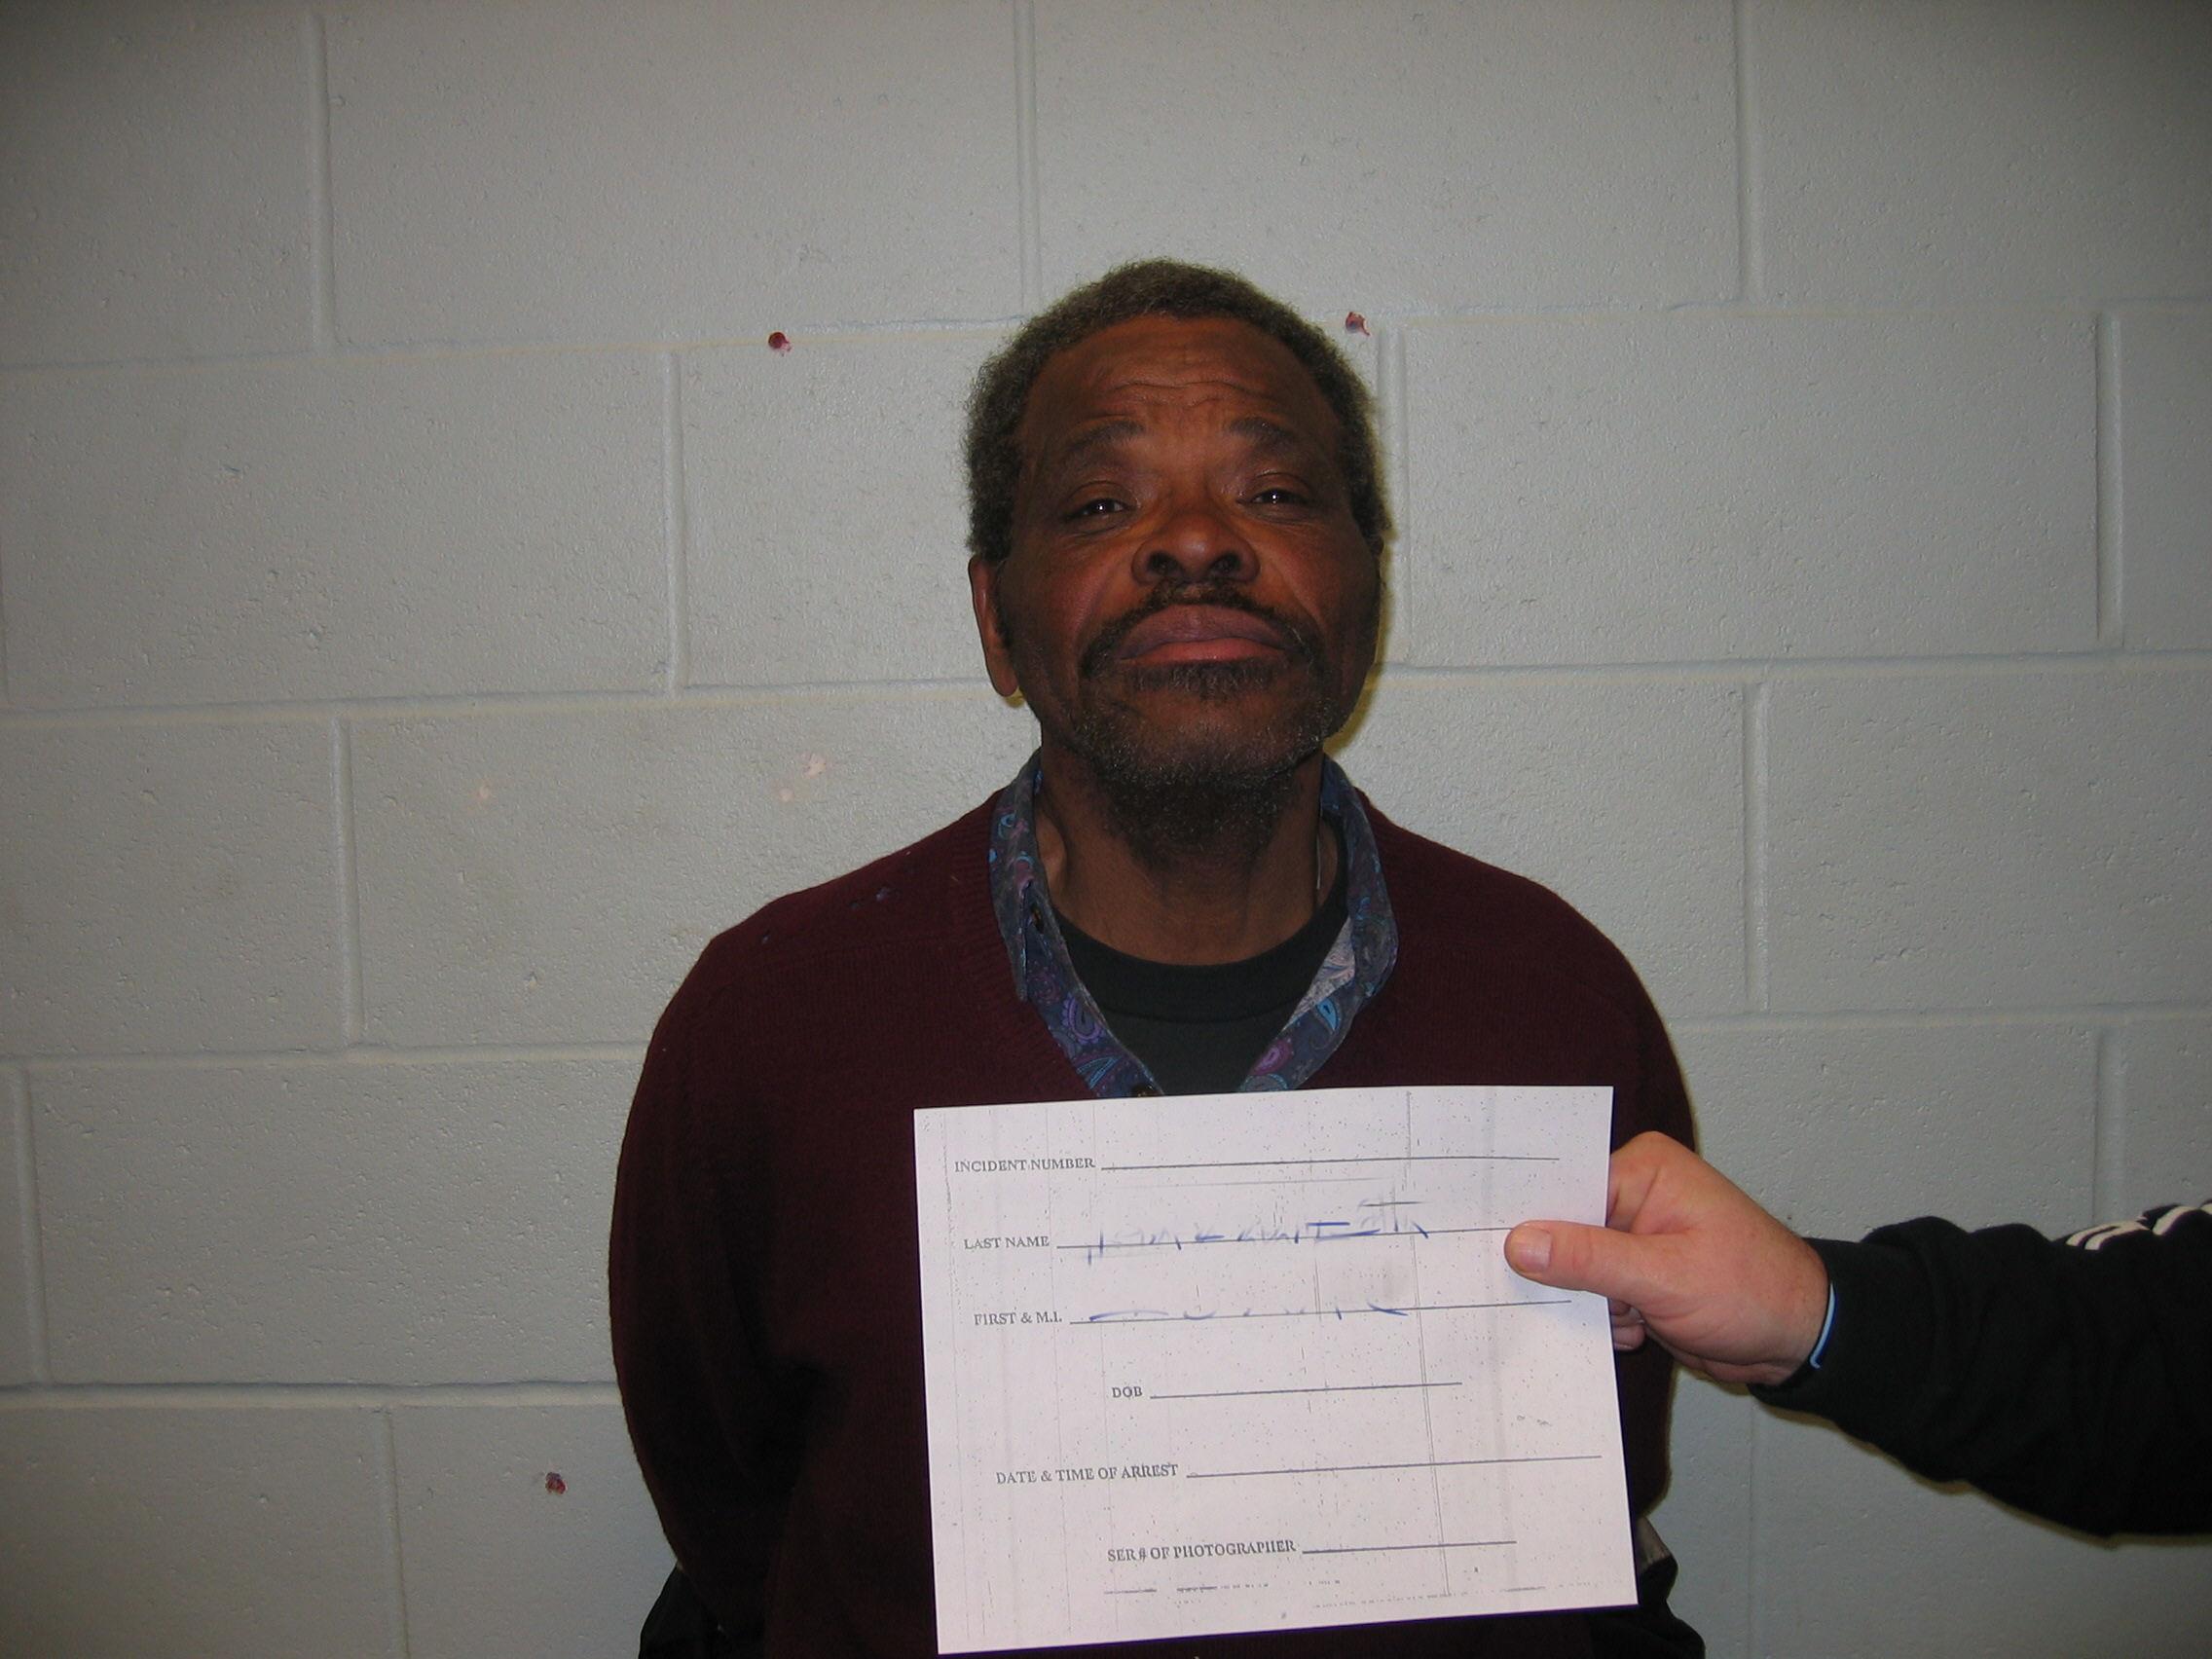 INCIDENT NUMBER
LAST NAME
FIRST & M.I.
DOB
DATE & TIME OF ARREST
SER# OF PHOTOGRAPHER